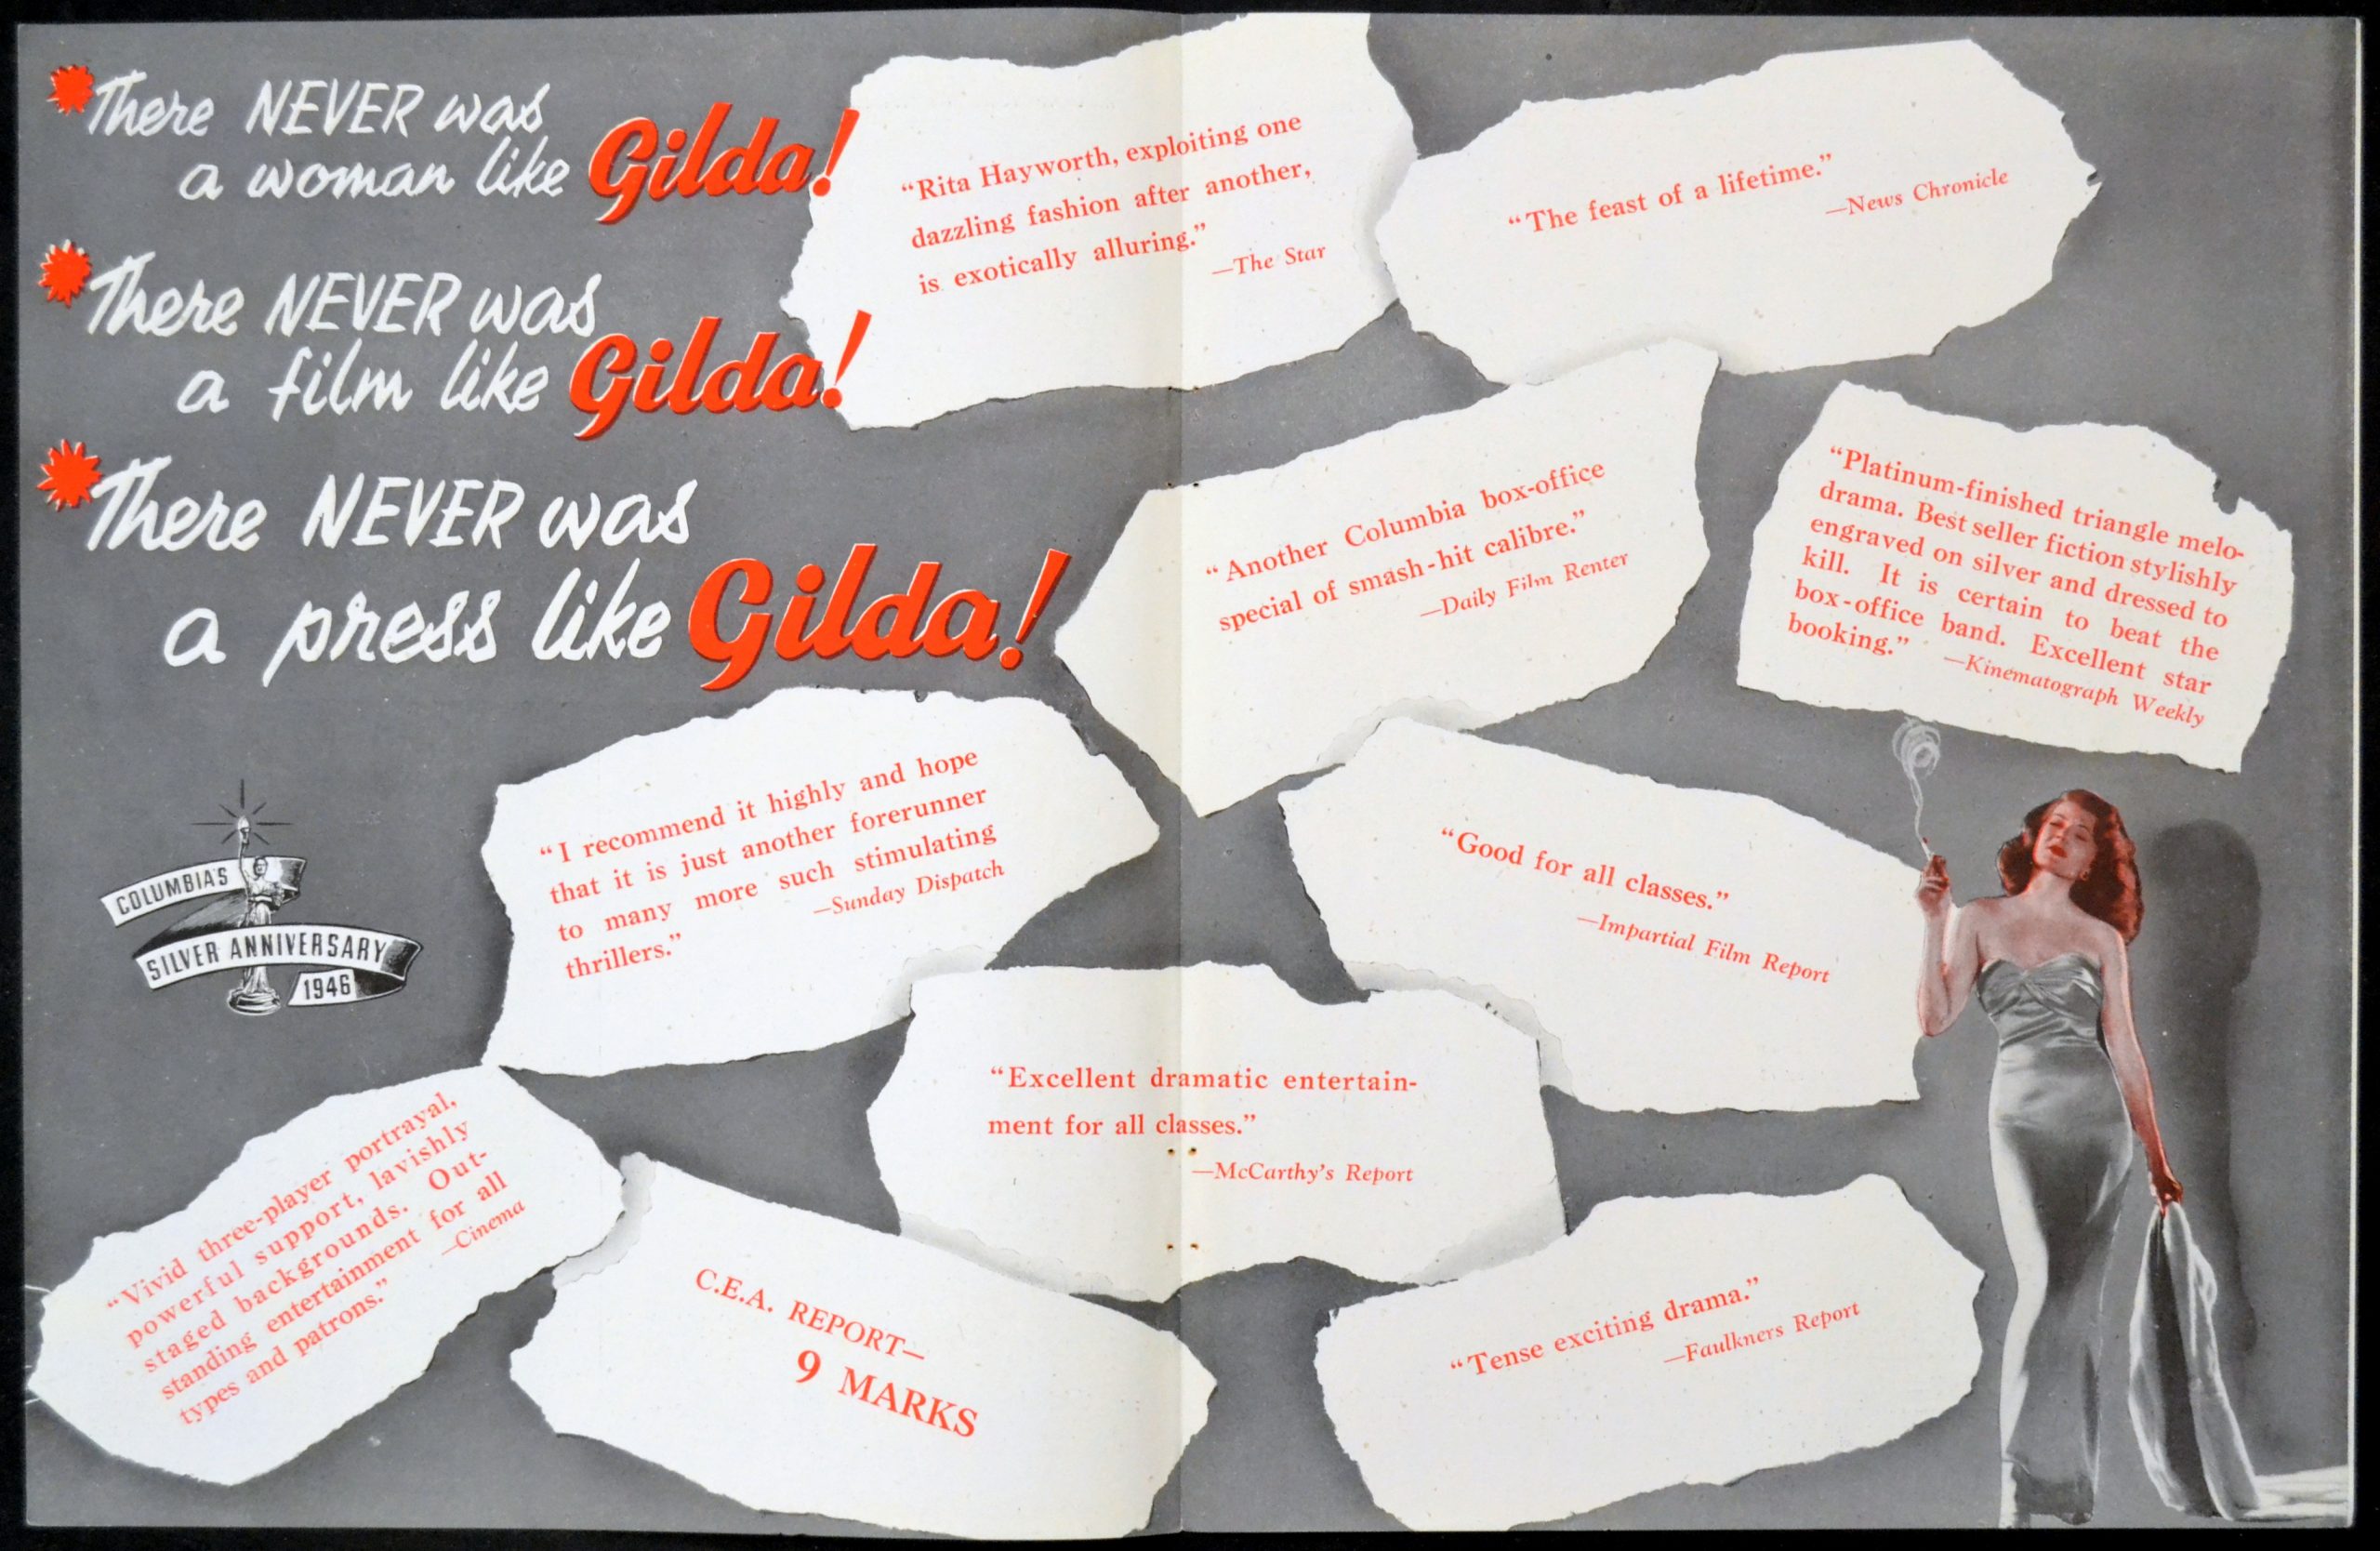 There NEVER was
a woman like Gilda!
There NEVER was
a film like Gilda!
There NEVER was
a press like Gilda!
“Rita Hayworth, exploiting one
dazzling fashion after another,
is exotically alluring.”
—The Star
“The feast of a lifetime.”
—News Chronicle
“Another Columbia box-office
special of smash-hit calibre.”
—Daily Film Renter
“Platinum-finished triangle melo-
drama. Best seller fiction stylishly
engraved on silver and dressed to
kill. It is certain to beat the
box-office band. Excellent star
booking.”
—Kinematograph Weekly
“I recommend it highly and hope
that it is just another forerunner
to many more such stimulating
thrillers.”
—Sunday Dispatch
“Good for all classes.”
—Impartial Film Report
COLUMBIA'S
SILVER ANNIVERSARY
1946
“Excellent dramatic entertain-
ment for all classes.”
—McCarthy's Report
“Vivid three-player portrayal,
powerful support, lavishly
staged backgrounds. Out-
standing entertainment for all
types and patrons.”
—Cinema
C.E.A. REPORT—
9 MARKS
“Tense exciting drama.”
—Faulkners Report